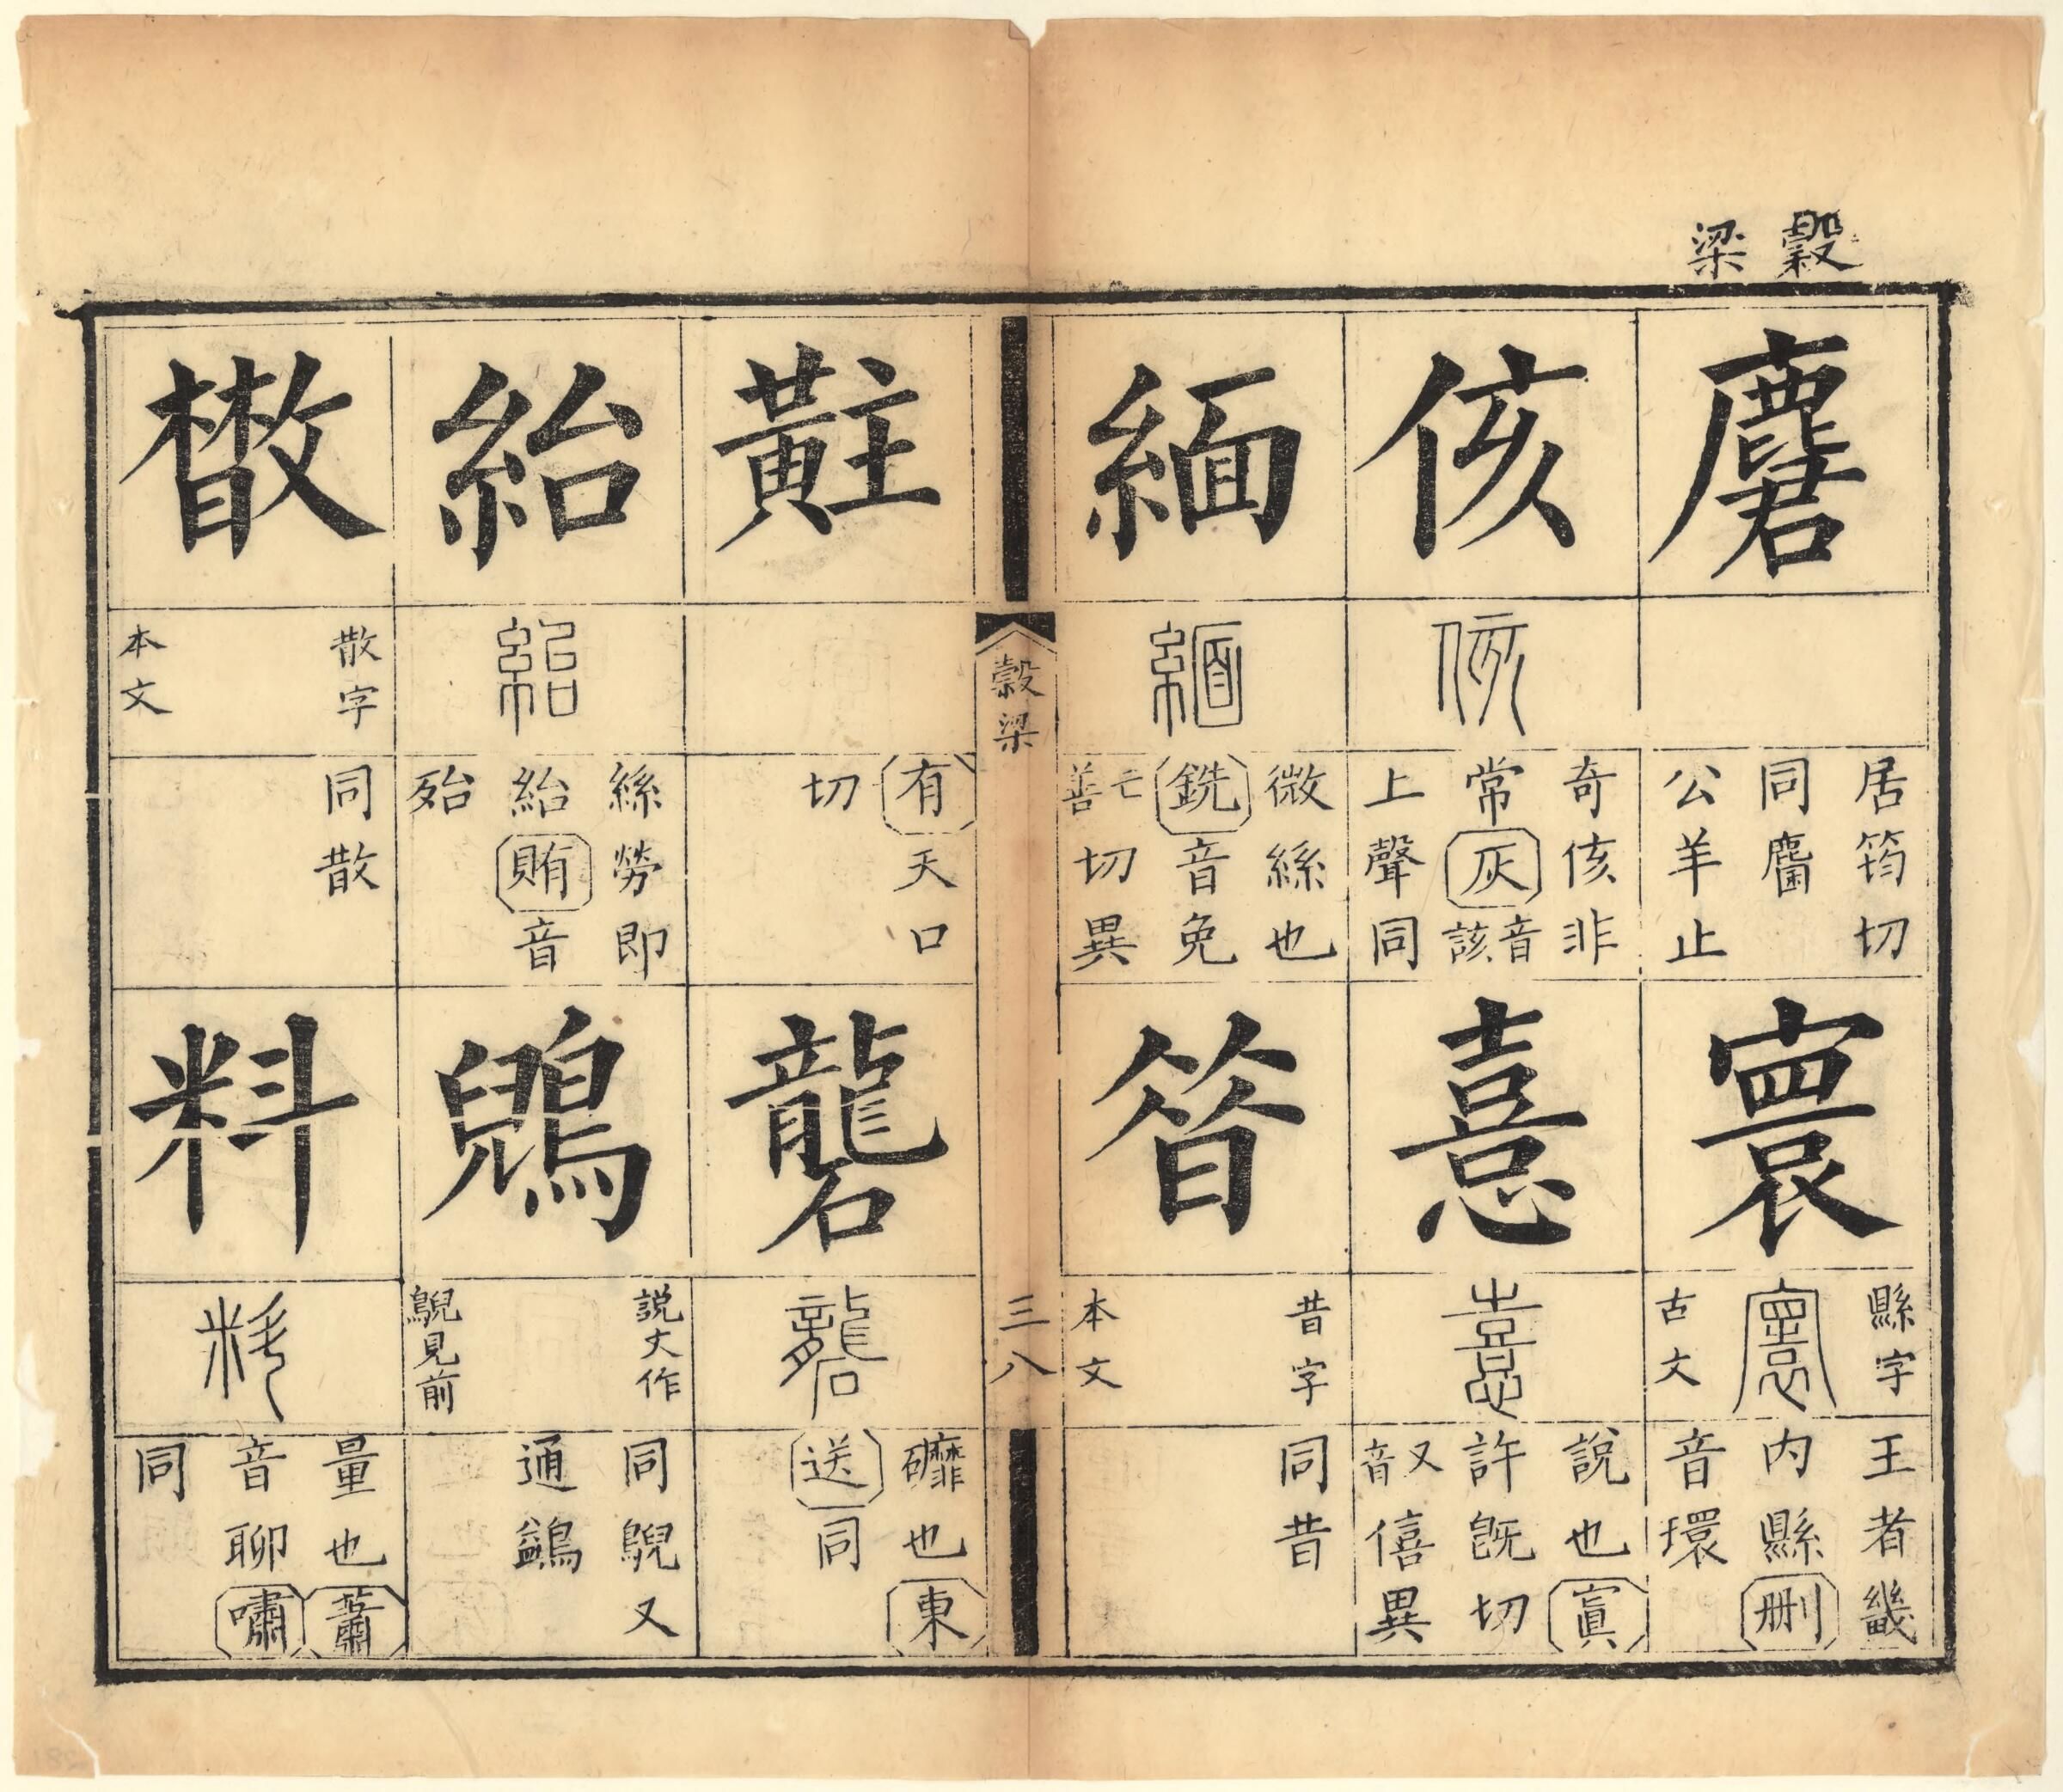 穀梁
麏
居筠切
同麕
公羊止
寰
縣字
古文
王者畿
内縣刪
音環
侅
奇侅非
常灰音該
上聲同
憙
說也寘
許旣切
又音僖異
緬
微絲也
銑音免
亡善切異
昔字
本文
同昔
穀梁
三八
黈
有天口
切
礱
䃺也東
送同
紿
絲勞即
紿賄音
殆
鶃
説文作
鶂見前
同鶂又
通鷁
散字
本文
同散
料
量也蕭
音聊嘯
同